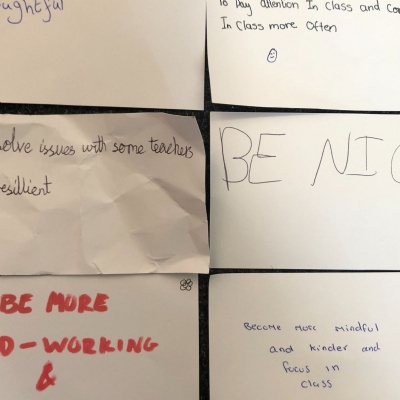 To Pay attention In Class and
In Class more Often
solve issues with some teachers
resillient
BE
BE MORE
D-WORKING
&
Become more mindful
and kinder and
focus in
class